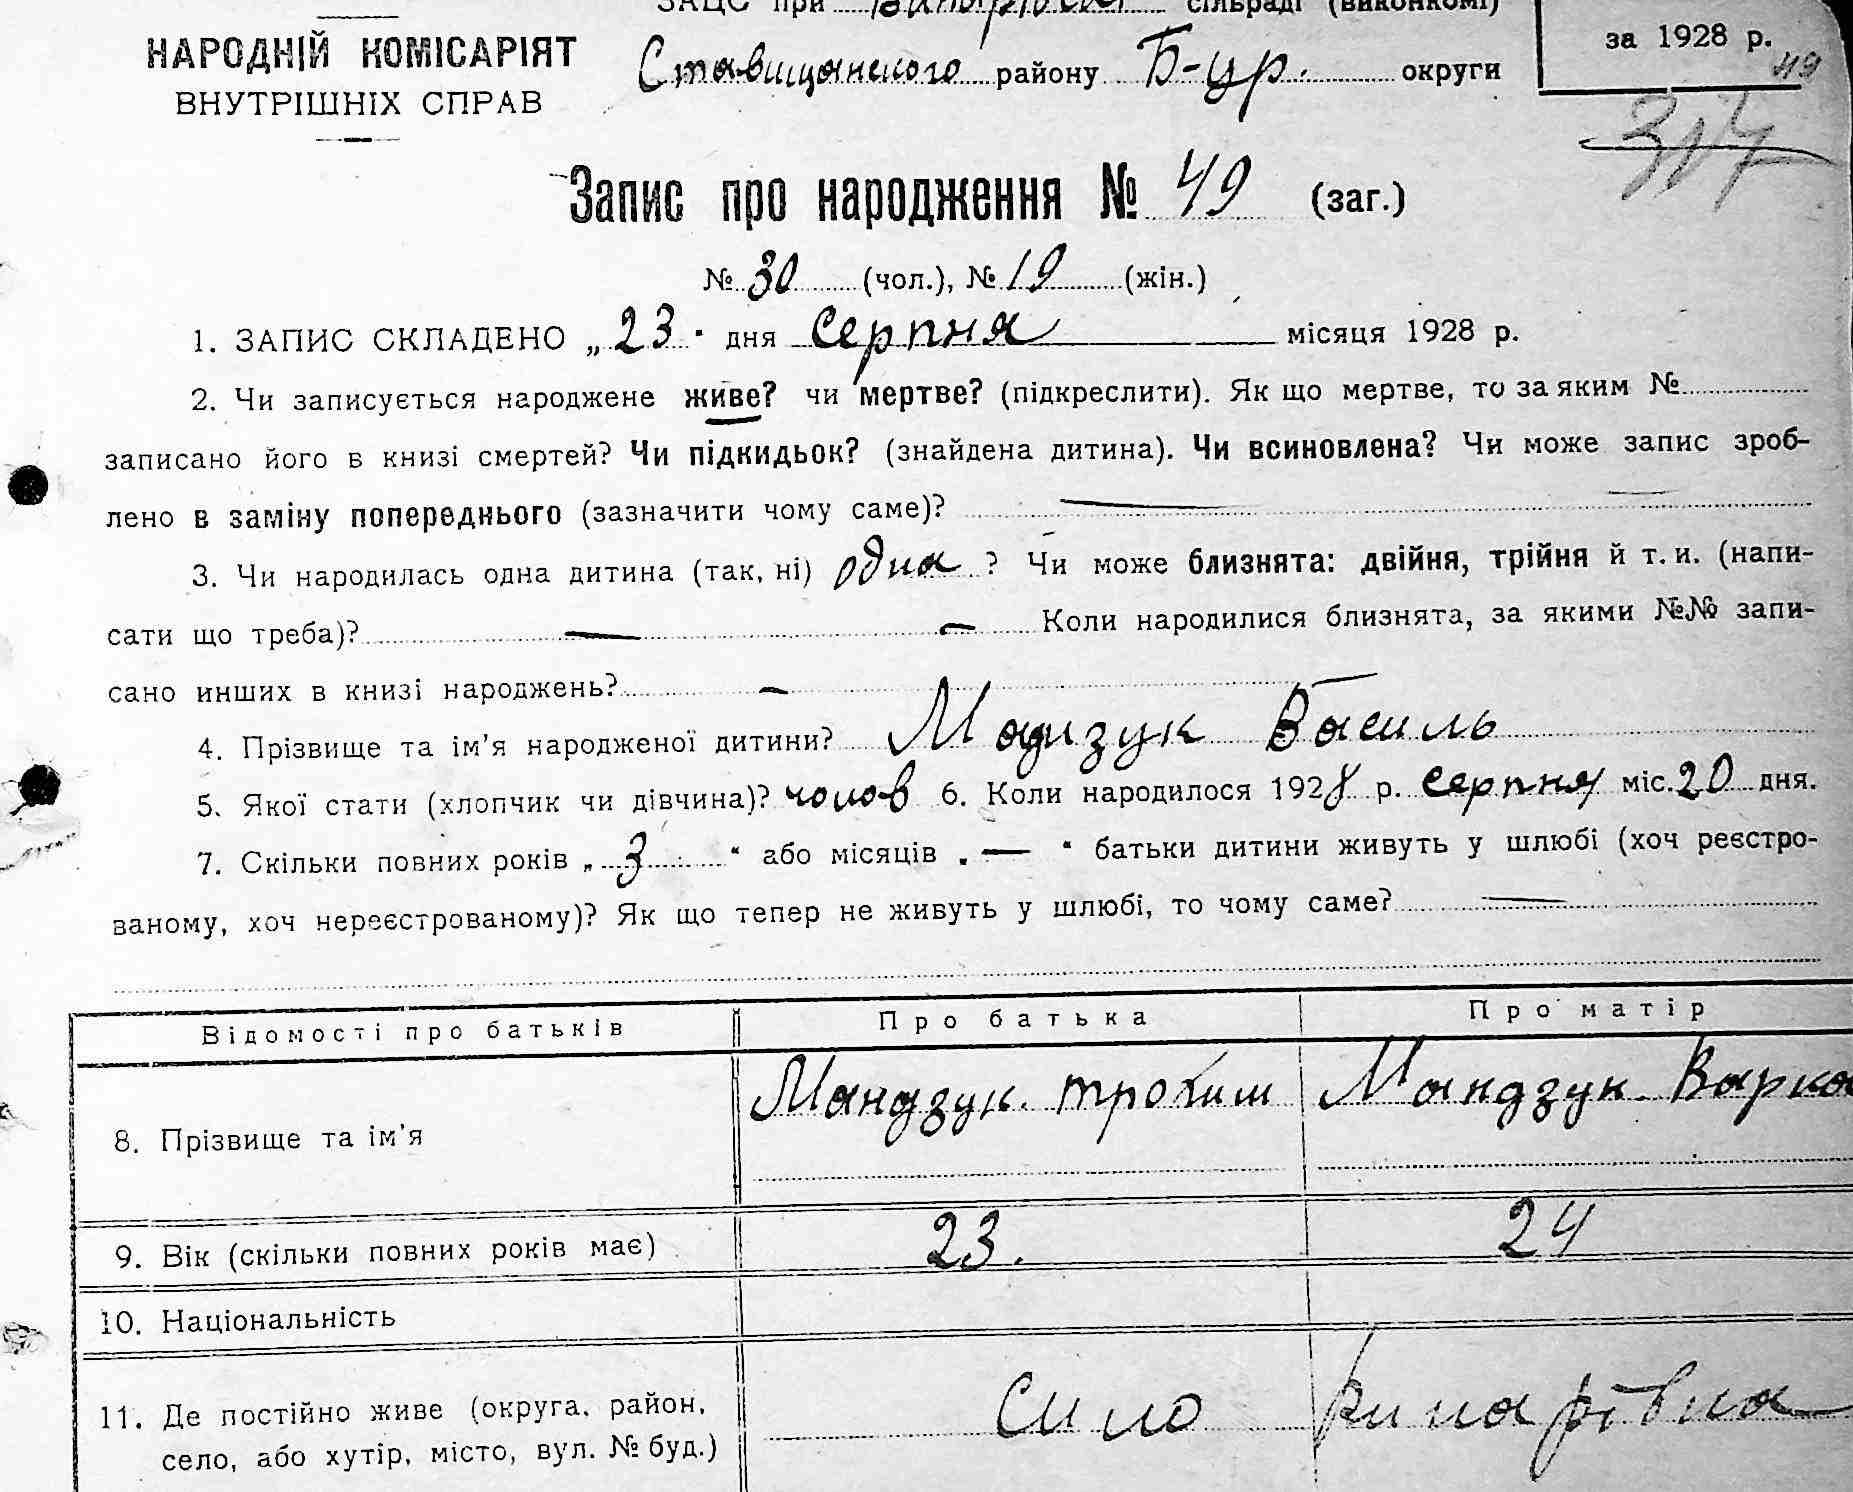 ЗАЦС при сільраді (виконкомі)
НАРОДНІЙ КОМІСАРІЯТ
ВНУТРІШНІХ СПРАВ
Ставищанского району Б-цр. округи
за 1928 р.
49
317
Запис про народження № 49 (заг.)
№ 30 (чол.), № 19 (жін.)
1. ЗАПИС СКЛАДЕНО „ 23 " дня Серпня місяця 1928 р.
2. Чи записується народжене живе? чи мертве? (підкреслити). Як що мертве, то за яким №
записано його в книзі смертей? Чи підкидьок? (знайдена дитина). Чи всиновлена? Чи може запис зроб-
лено в заміну попереднього (зазначити чому саме)? —
3. Чи народилась одна дитина (так, ні) одна ? Чи може близнята: двійня, трійня й т. и. (напи-
сати що треба)? — — Коли народилися близнята, за якими №№ запи-
сано инших в книзі народжень? — —
4. Прізвище та ім'я народженої дитини? Мандзук Василь
5. Якої стати (хлопчик чи дівчина)? чолов 6. Коли народилося 1928 р. Серпня міс. 20 дня.
7. Скільки повних років „ 3 “ або місяців „ — “ батьки дитини живуть у шлюбі (хоч реєстро-
ваному, хоч нереєстрованому)? Як що тепер не живуть у шлюбі, то чому саме? —
Відомості про батьків Про батька Про матір
8. Прізвище та ім'я Мандзук Трохим Мандзук Варка
9. Вік (скільки повних років має) 23. 24
10. Національність
11. Де постійно живе (округа, район,
село, або хутір, місто, вул. № буд.)
Сило